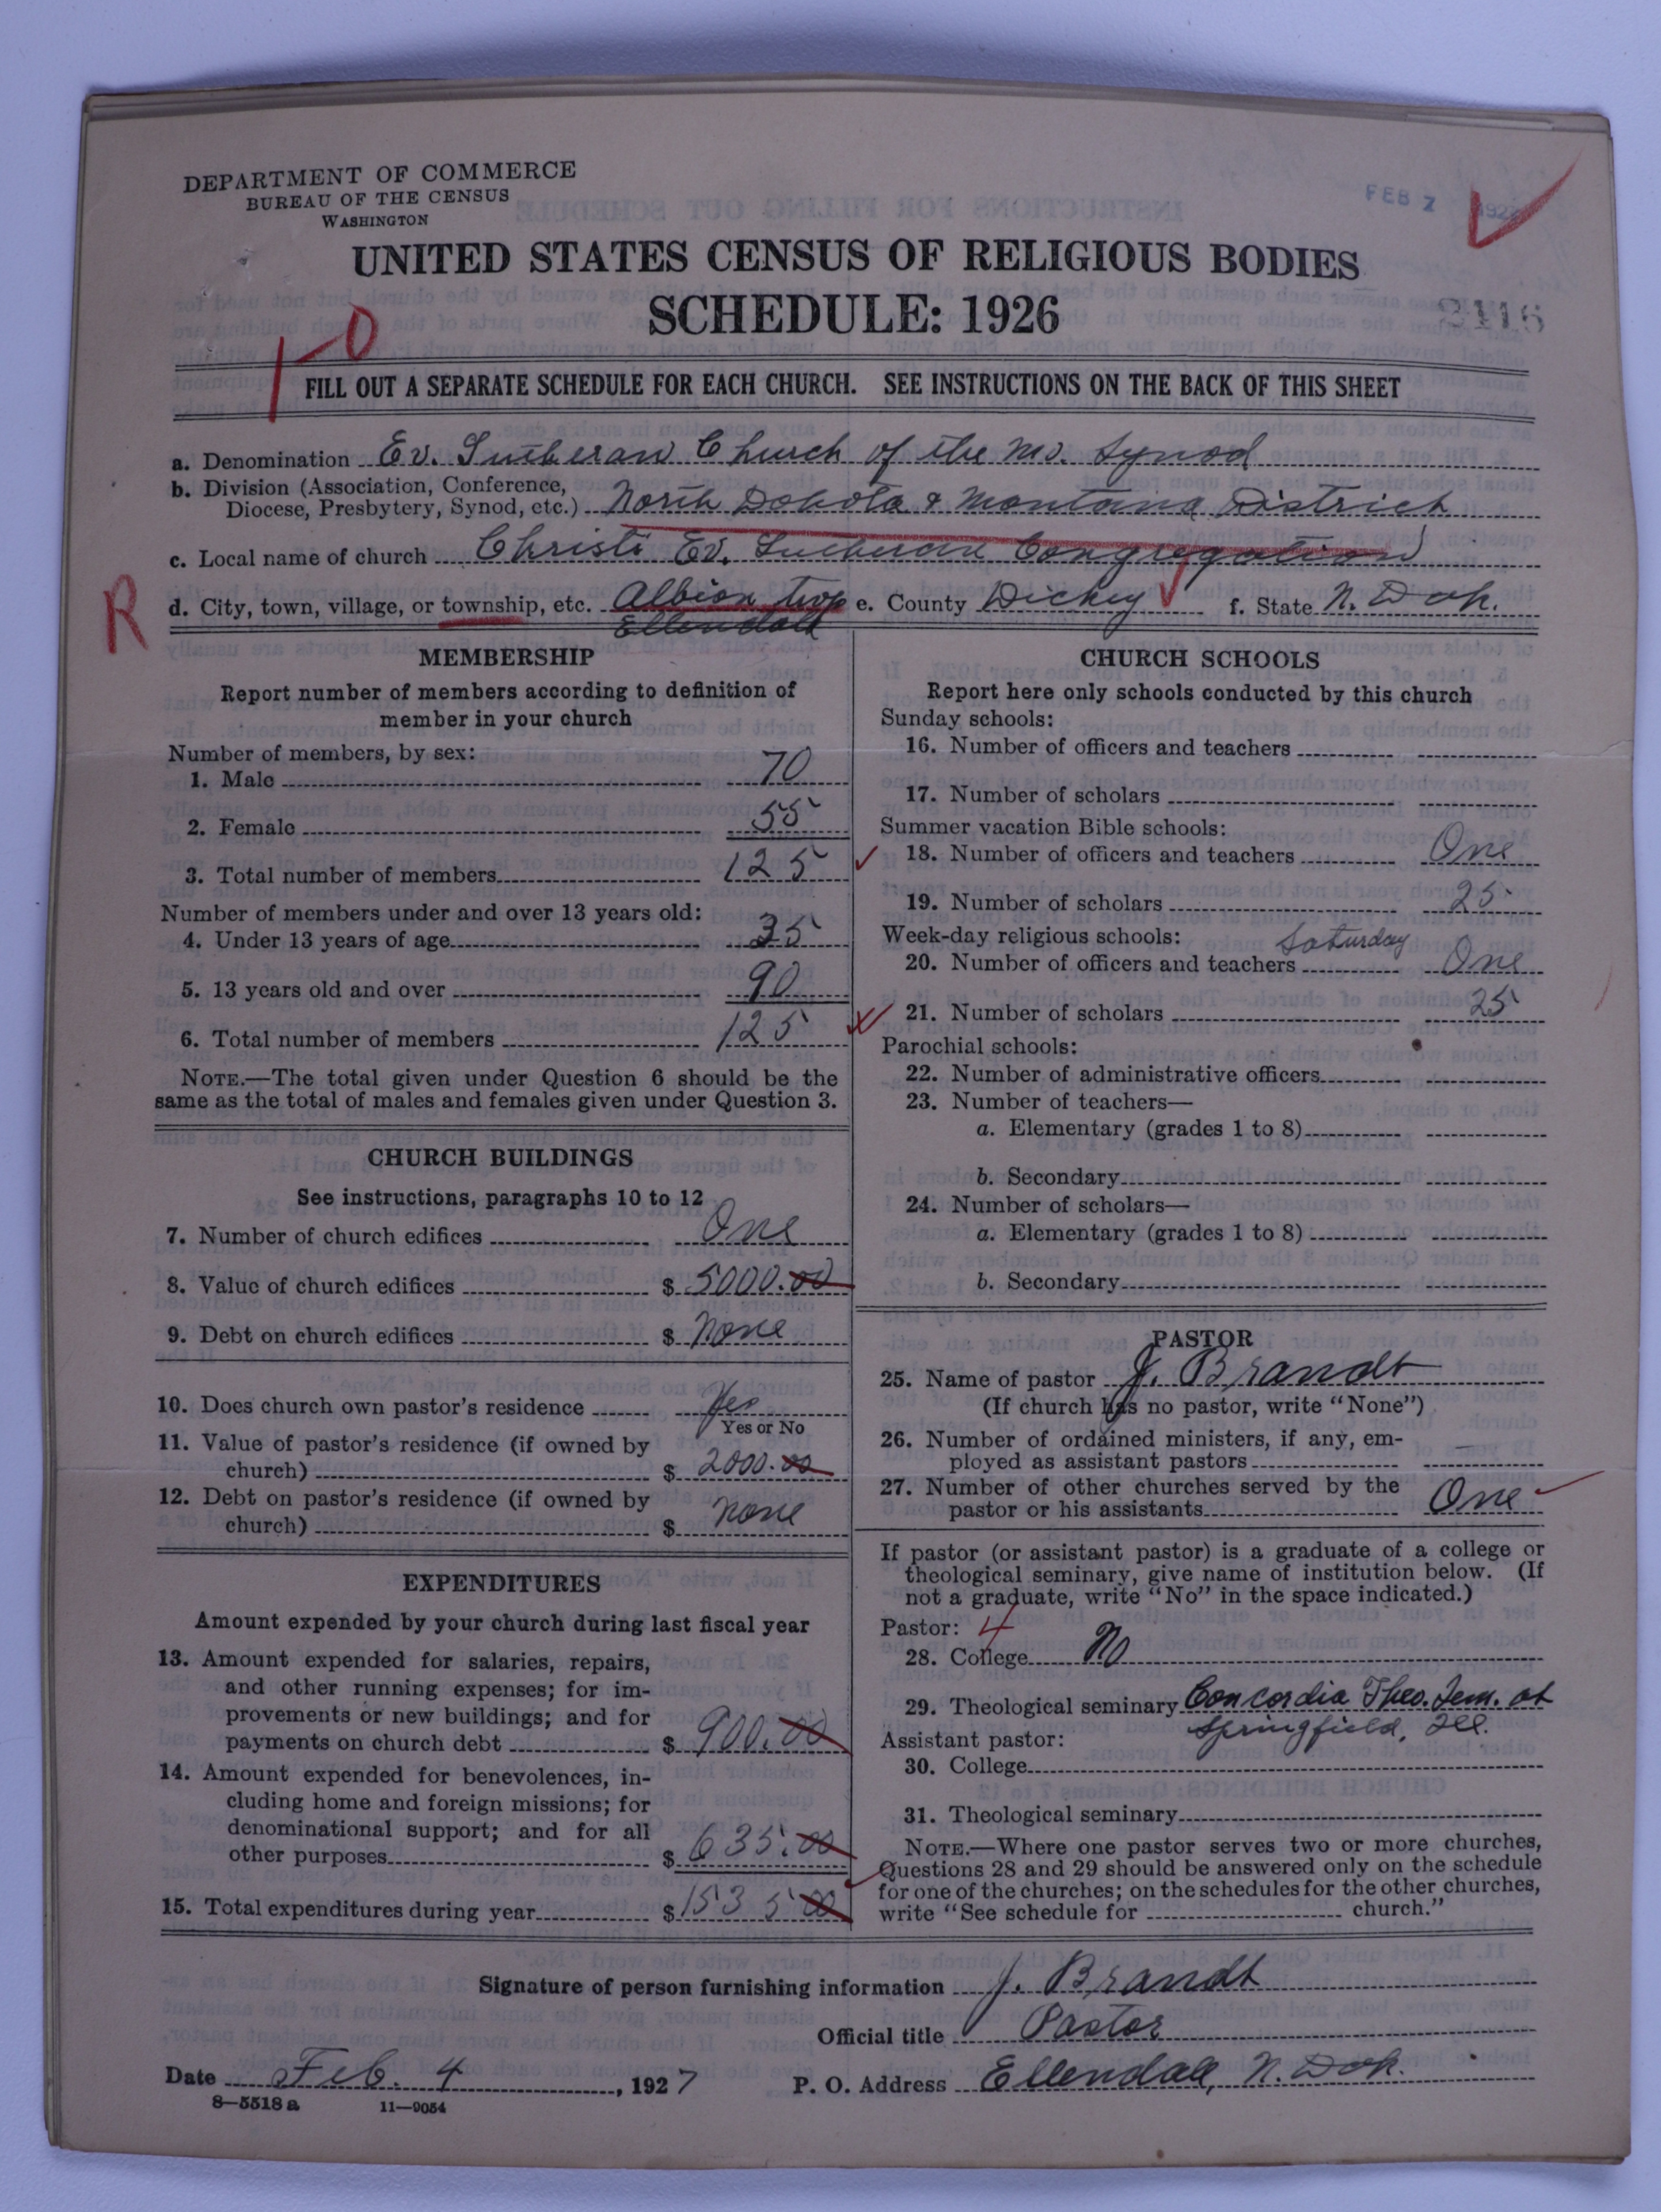 DEPARTMENT OF COMMERCE
BUREAU OF THE CENSUS
WASHINGTON
FEB 7 192
UNITED STATES CENSUS OF RELIGIOUS BODIES
SCHEDULE: 1926
1-0
FILL OUT A SEPARATE SCHEDULE FOR EACH CHURCH. SEE INSTRUCTIONS ON THE BACK OF THIS SHEET
a. Denomination Ev. Lutheran Church of the Mo. Synod
b. Division (Association, Conference, Diocese, Presbytery, Synod, etc.) North Dakota & Montana District
c. Local name of church Christi Ev. Lutheran Congregation
R
d. City, town, village, or township, etc. Albion twp e. County Dickey f. State N. Dak.
Ellendale
MEMBERSHIP
Report number of members according to definition of
member in your church
Number of members, by sex:
1. Male 70
2. Female 55
3. Total number of members 125
Number of members under and over 13 years old:
4. Under 13 years of age 35
5. 13 years old and over 90
6. Total number of members 125
NOTE.—The total given under Question 6 should be the
same as the total of males and females given under Question 3.
CHURCH BUILDINGS
See instructions, paragraphs 10 to 12
7. Number of church edifices One
8. Value of church edifices $ 5000.00
9. Debt on church edifices $ None
10. Does church own pastor's residence Yes
Yes or No
11. Value of pastor's residence (if owned by
church) $ 2000.00
12. Debt on pastor's residence (if owned by
church) $ none
EXPENDITURES
Amount expended by your church during last fiscal year
13. Amount expended for salaries, repairs,
and other running expenses; for im-
provements or new buildings; and for
payments on church debt $ 900.00
14. Amount expended for benevolences, in-
cluding home and foreign missions; for
denominational support; and for all
other purposes $ 635.00
15. Total expenditures during year $ 1535 00
CHURCH SCHOOLS
Report here only schools conducted by this church
Sunday schools:
16. Number of officers and teachers
17. Number of scholars
Summer vacation Bible schools:
18. Number of officers and teachers One
19. Number of scholars 25
Week-day religious schools: Saturday
20. Number of officers and teachers One
21. Number of scholars 25
Parochial schools:
22. Number of administrative officers
23. Number of teachers—
a. Elementary (grades 1 to 8)
b. Secondary
24. Number of scholars—
a. Elementary (grades 1 to 8)
b. Secondary
PASTOR
25. Name of pastor J. Brandt
(If church has no pastor, write "None")
26. Number of ordained ministers, if any, em-
ployed as assistant pastors —
27. Number of other churches served by the
pastor or his assistants One
If pastor (or assistant pastor) is a graduate of a college or
theological seminary, give name of institution below. (If
not a graduate, write "No" in the space indicated.)
Pastor: 4
28. College No
29. Theological seminary Concordia Theo. Sem. at
Springfield, Ill.
Assistant pastor:
30. College
31. Theological seminary
NOTE.—Where one pastor serves two or more churches,
Questions 28 and 29 should be answered only on the schedule
for one of the churches; on the schedules for the other churches,
write "See schedule for church."
Signature of person furnishing information J. Brandt
Official title Pastor
Date Feb. 4, 1927 P. O. Address Ellendale, N. Dak.
8—5518a 11—9054